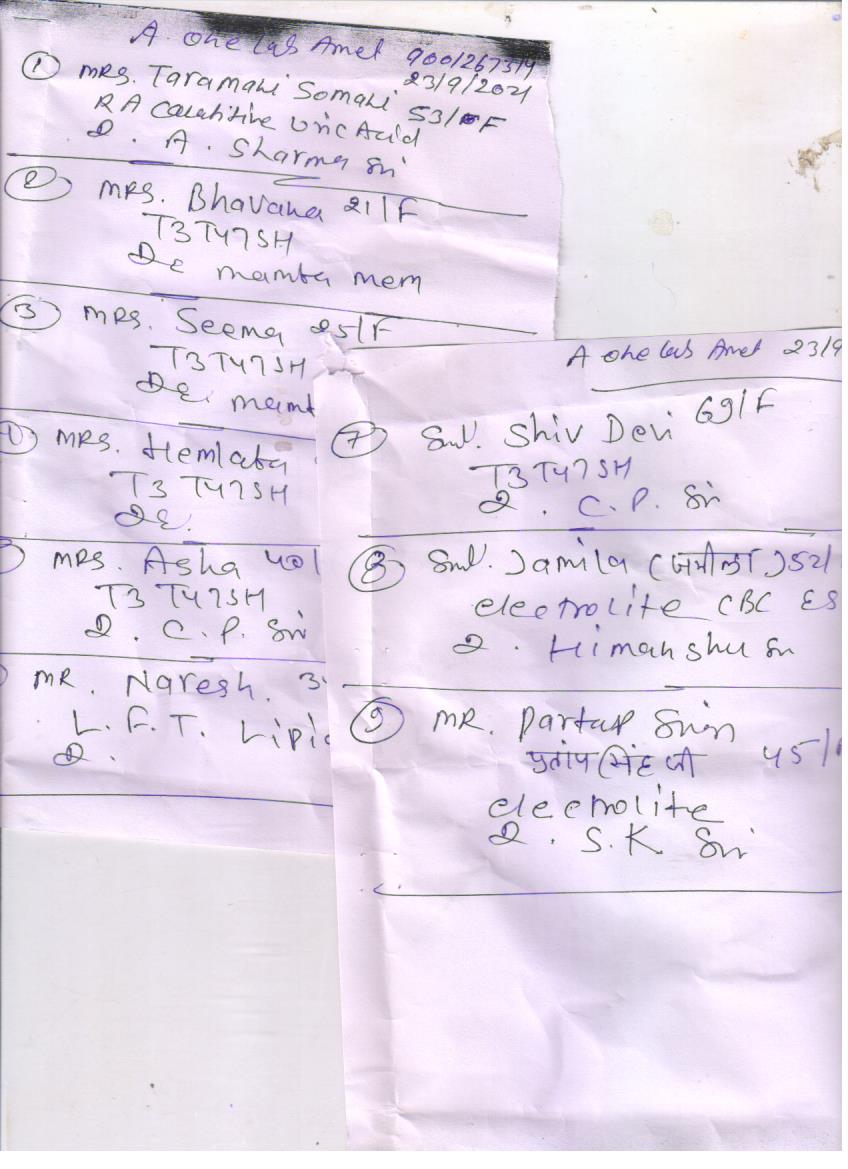 A. one Lab Amet 9001267314
23/9/2021
① MRS. Taramani Somani 53/F
RA Quantitive Uric Acid
D. A. Sharma Sir
② MRS. Bhavana 21/F
T3 T4 TSH
Dr mamta mem
③ MRS. Seema 25/F
T3 T4 TSH
Dr. mamt
MRS. Hemlata
T3 T4 TSH
Dr.
MRS. Asha 40/
T3 T4 TSH
D. C. P. Sir
MR. Naresh. 3
L. F. T. Lipi
D.
A one Lab Amet 23/9
⑦ Smt. Shiv Devi 69/F
T3 T4 TSH
D. C. P. Sir
⑧ Smt. Jamila (जमीला) 52/
electrolite CBC ES
D. Himanshu Sir
⑨ MR. Partap Singh
प्रताप सिंह जी 45/
electrolite
D. S. K. Sir